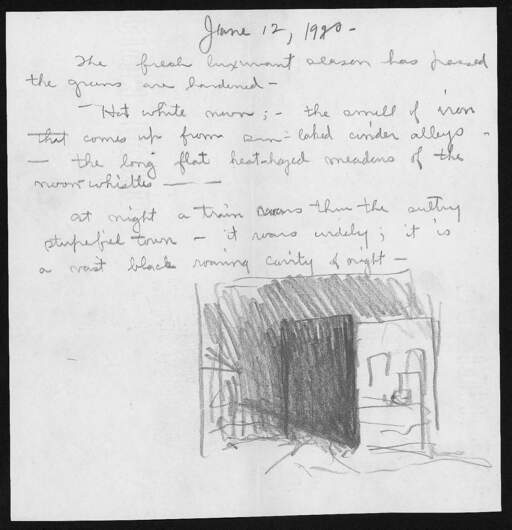 June 12, 1920 -
The fresh luxuriant season has passed
the greens are hardened -
Hot white noon; - the smell of iron
that comes up from sun-baked cinder alleys -
- the long flat heat-hazed meadows of the
noon whistles —
At night a train roars thru the sultry
stupefied town - it roars widely; it is
a vast black roaring cavity of night -